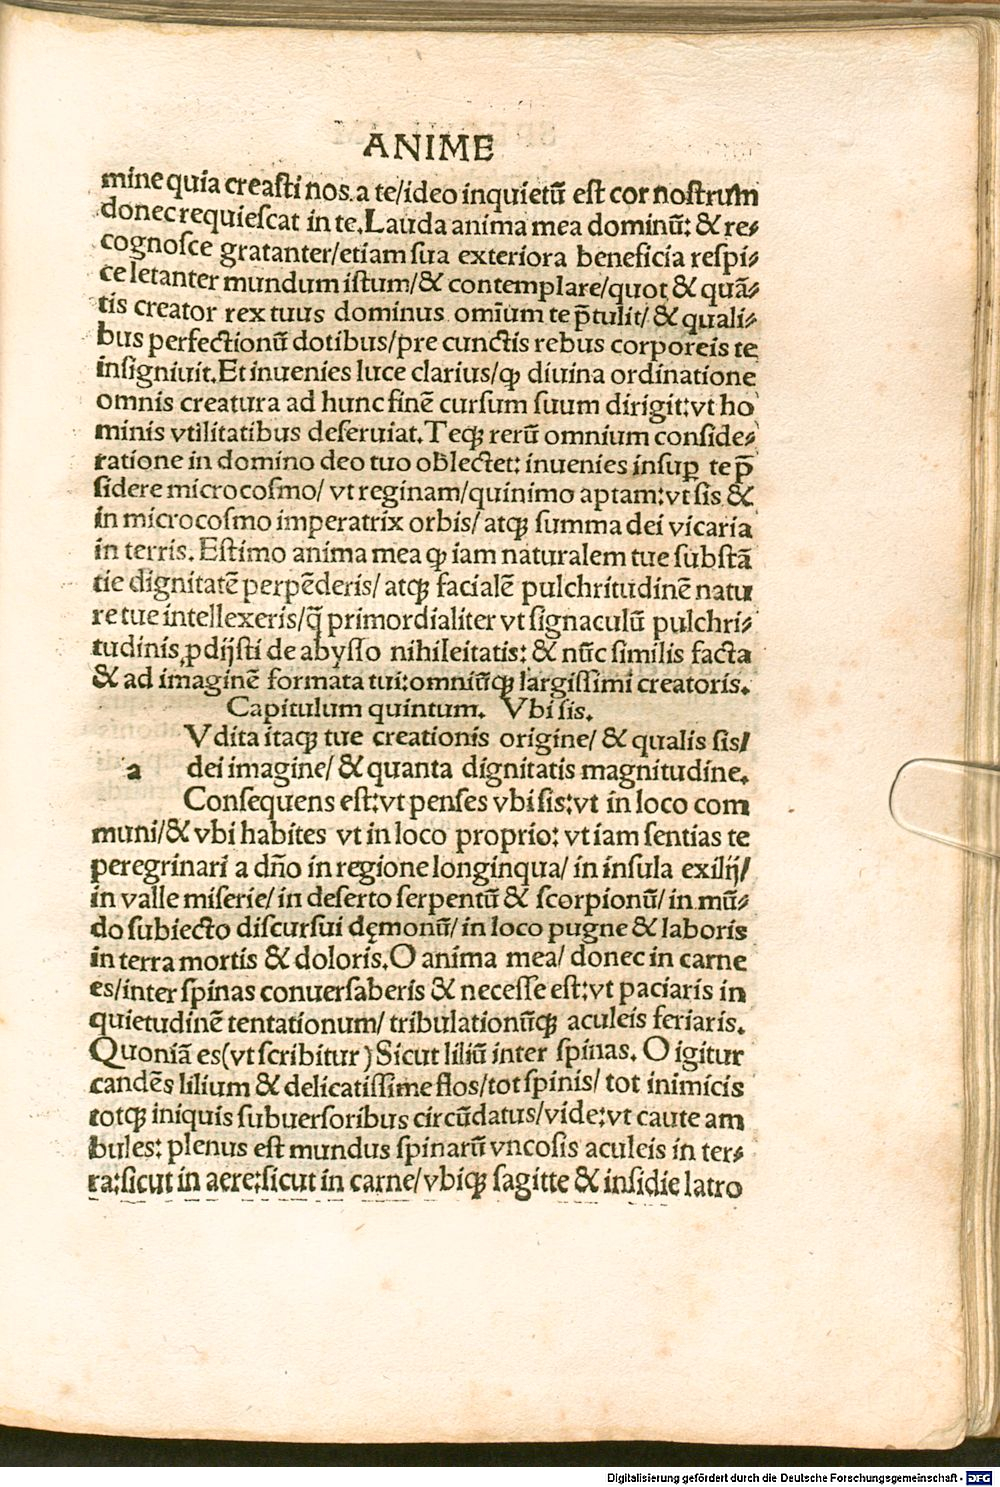 ANIME
mine quia creaſti nos. a te/ideo inquietū eſt cor noſtrum
donec requieſcat in te. Lauda anima mea dominū: & re⸗
cognoſce gratanter/etiam ſua exteriora beneficia reſpi⸗
ce letanter mundum iſtum/& contemplare/quot & quā⸗
tis creator rex tuus dominus omīum te p̄tulit/ & quali⸗
bus perfectionū dotibus/pre cunctis rebus corporeis te
inſigniuit. Et inuenies luce clarius/ꝙ diuina ordinatione
omnis creatura ad hunc finē curſum ſuum dirigit: vt ho
minis vtilitatibus deſeruiat. Teqꝫ rerū omnium conſide⸗
ratione in domino deo tuo oblectet: inuenies inſuꝑ te p̄
ſidere microcoſmo/ vt reginam/quinimo aptam: vt ſis &
in microcoſmo imperatrix orbis/ atqꝫ ſumma dei vicaria
in terris. Eſtimo anima mea ꝙ iam naturalem tue ſubſtā
tie dignitatē perpēderis/ atqꝫ facialē pulchritudinē natu
re tue intellexeris/q̄ primordialiter vt ſignaculū pulchri⸗
tudinis ꝓdijſti de abyſſo nihileitatis: & nūc ſimilis facta
& ad imaginē formata tui: omniūqꝫ largiſſimi creatoris.
Capitulum quintum. Vbi ſis.
Vdita itaqꝫ tue creationis origine/ & qualis ſis/
a dei imagine/ & quanta dignitatis magnitudine.
Conſequens eſt: vt penſes vbi ſis: vt in loco com
muni/& vbi habites vt in loco proprio: vt iam ſentias te
peregrinari a dño in regione longinqua/ in inſula exilij/
in valle miſerie/ in deſerto ſerpentū & ſcorpionū/ in mū⸗
do ſubiecto diſcurſui dęmonū/ in loco pugne & laboris
in terra mortis & doloris. O anima mea/ donec in carne
es/inter ſpinas conuerſaberis & neceſſe eſt: vt paciaris in
quietudinē tentationum/ tribulationūqꝫ aculeis feriaris.
Quoniā es (vt ſcribitur) Sicut liliū inter ſpinas. O igitur
candēs lilium & delicatiſſime flos/tot ſpinis/ tot inimicis
totqꝫ iniquis ſubuerſoribus circūdatus/vide: vt caute am
bules: plenus eſt mundus ſpinarū vncoſis aculeis in ter⸗
ra: ſicut in aere: ſicut in carne/ vbiqꝫ ſagitte & inſidie latro
Digitalisierung gefördert durch die Deutsche Forschungsgemeinschaft - DFG